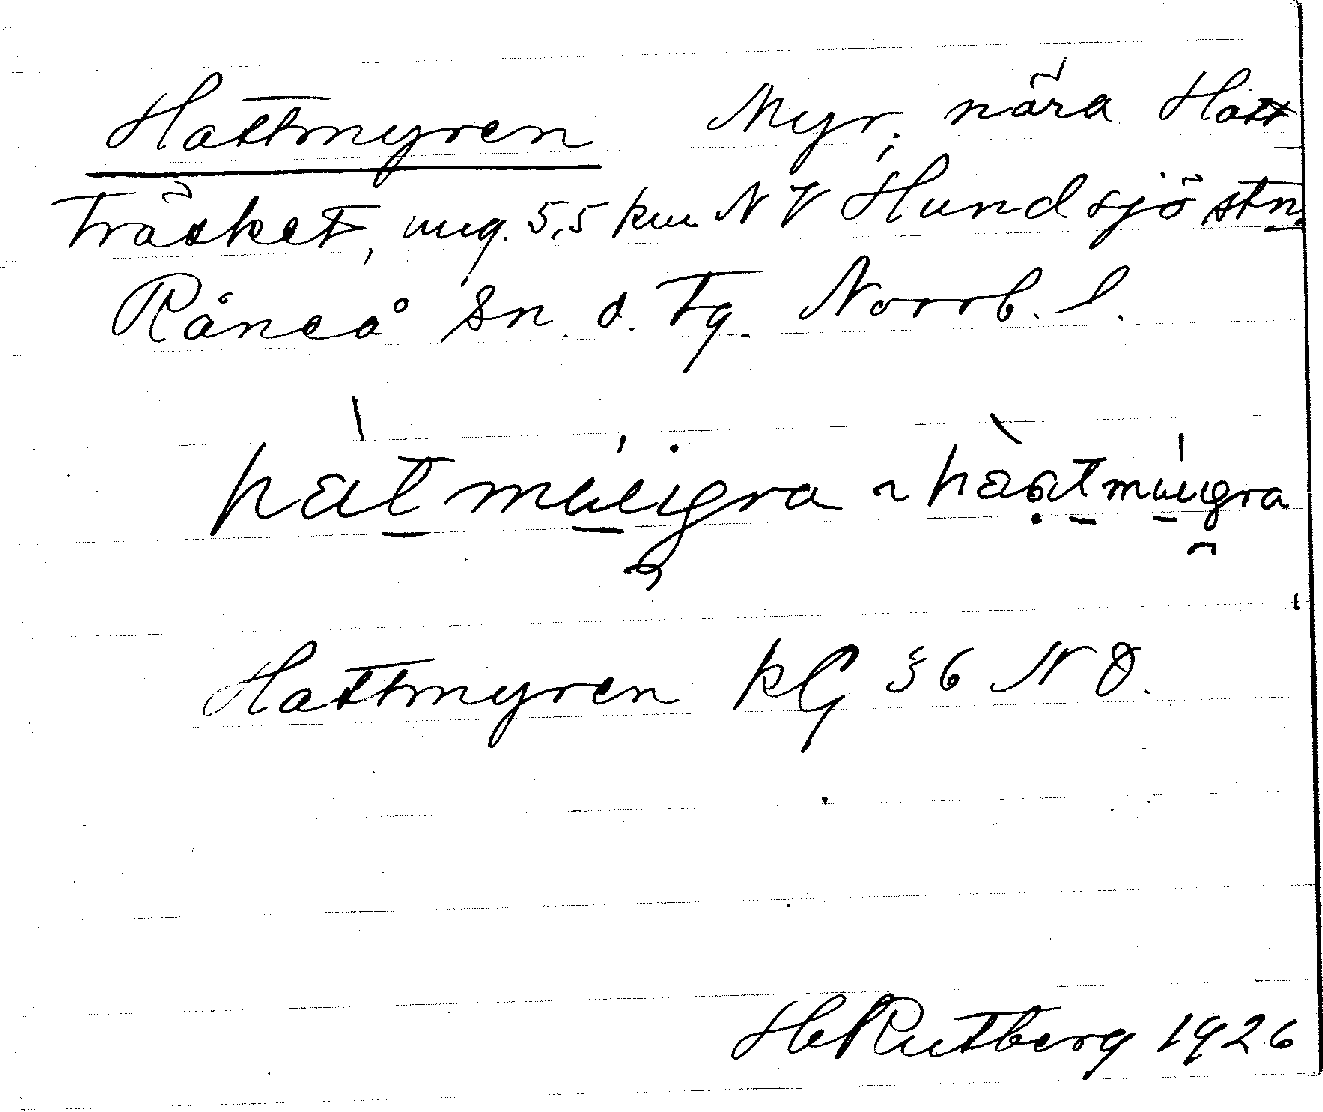 Hattmyren Myr, nära Hatt
träsket, ung. 5,5 km NV Hundsjö stn.
Råneå sn o. tg. Norrb. l.
hàt múigra ~ hàat múigra
Hattmyren kG §6 NO.
HRutberg 1926